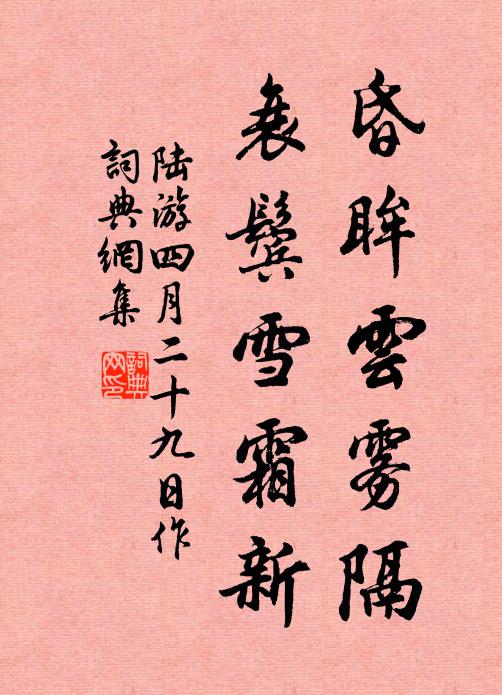 昏眸雲雾隔
衰鬓雪霜新
陆游四月二十九日作
詞典網集
詞典网印